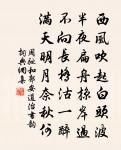 西風吹起白頭波
半夜扁舟掠岸過
不向長橋沽一醉
滿天明月奈秋何
周和郭安道治書韻
詞典網集